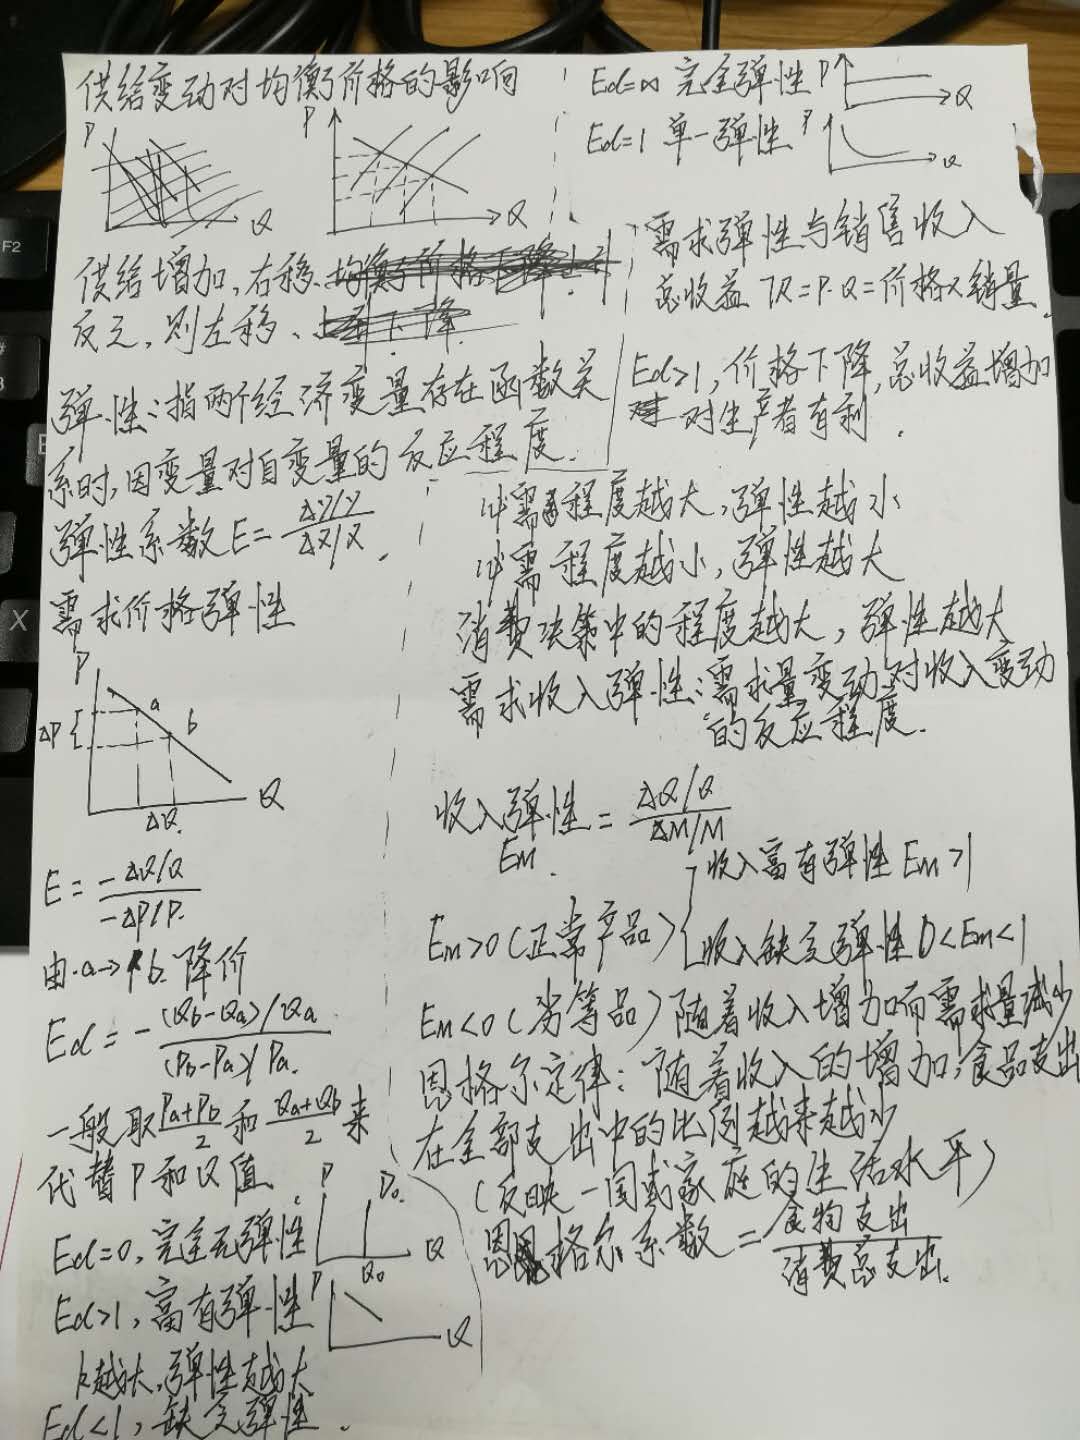 供给变动对均衡价格的影响
P
Q
P
Q
供给增加,右移、均衡价格下降.
反之,则左移、
弹性:指两个经济变量存在函数关
系时,因变量对自变量的反应程度.
弹性系数E= ΔY/Y / ΔX/X .
需求价格弹性
P
a
b
ΔP
ΔQ.
Q
E = -ΔQ/Q / -ΔP/P.
由a→b.降价
Ed = - (Qb-Qa)/Qa / (Pb-Pa)/Pa.
一般取 Pa+Pb/2 和 Qa+Qb/2 来
代替P和Q值.
Ed=0,完全无弹性
P
D0
Q0
Q
Ed>1,富有弹性
P
Q
k越大,弹性越大
Ed<1,缺乏弹性.
Ed=∞ 完全弹性
P
Q
Ed=1 单一弹性
P
Q
需求弹性与销售收入
总收益 TR=P·Q=价格×销量.
Ed>1,价格下降,总收益增加
对生产者有利.
必需程度越大,弹性越小
必需程度越小,弹性越大
消费决策中的程度越大,弹性越大
需求收入弹性:需求量变动对收入变动
的反应程度.
收入弹性 = ΔQ/Q / ΔM/M
Em.
收入富有弹性 Em>1
Em>0(正常产品)
收入缺乏弹性 0<Em<1
Em<0(劣等品)随着收入增加而需求量减少
恩格尔定律:随着收入的增加,食品支出
在全部支出中的比例越来越小
(反映一国或家庭的生活水平)
恩格尔系数 = 食物支出 / 消费总支出.